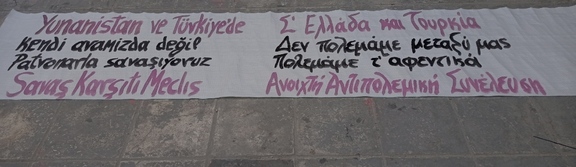 Yunanistan ve Türkiye'de
Kendi aramızda değil
Patronlarla savaşıyoruz
Savaş Karşıtı Meclis
Σ' Ελλάδα και Τουρκία
Δεν πολεμάμε μεταξύ μας
Πολεμάμε τ' αφεντικά
Ανοιχτή Αντιπολεμική Συνέλευση